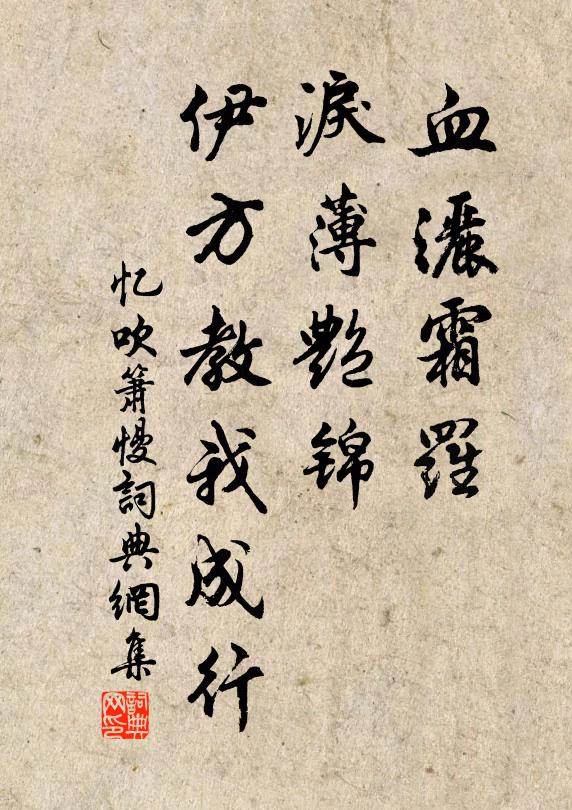 血灑霜羅
淚薄艷錦
伊方教我成行
忆吹簫慢詞典網集
詞典
网印